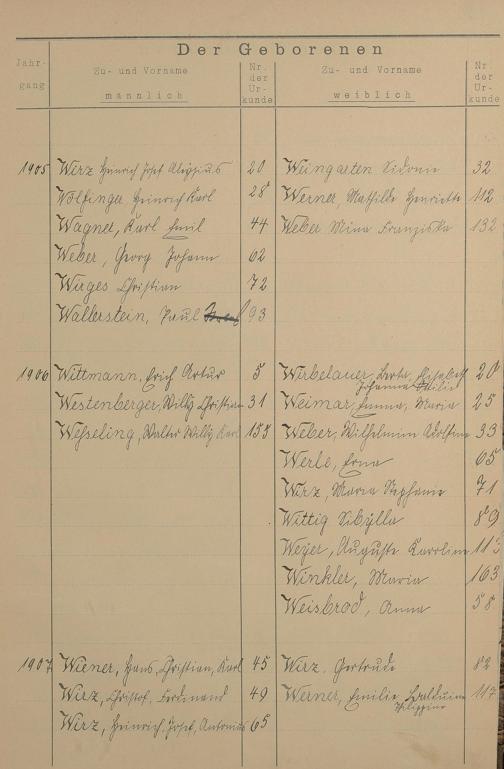 Der Geborenen
Jahr-
gang
Zu- und Vorname
männlich
Nr.
der
Ur-
kunde
Zu- und Vorname
weiblich
Nr
der
Ur-
kunde
1905 Wirz Heinrich Josef Aloysius 20 Weingarten Sidonie 32
Wolfinger Heinrich Karl 28 Werner, Mathilde Henriette 112
Wagner, Karl Emil 44 Weber Mina Franziska 132
Weber, Georg Johann 62
Wirges Christian 72
Wallerstein, Paul 93
1906 Wittmann, Erich Artur 5 Wirbelauer, Berta, Elisabeth 20
Johanna
Westenberger, Willy Christian 31 Weimar, Emma, Maria 25
Wesseling, Walter Willy Karl 155 Weber, Wilhelmin 33
Werle, Erna 65
Wirz, Maria Stephanie 71
Wittig Sibylla 89
Weyer, Auguste Karoline
Winkler, Maria 163
Weisbrod, Anna 58
1907 Wiener, Hans, Christian, Karl 45 Wirz, Gertrude 82
Wirz, Christof, Ferdinand 49 Werner, Emilie 117
Philippine
Wirz, Heinrich, Josef, Antonius 65